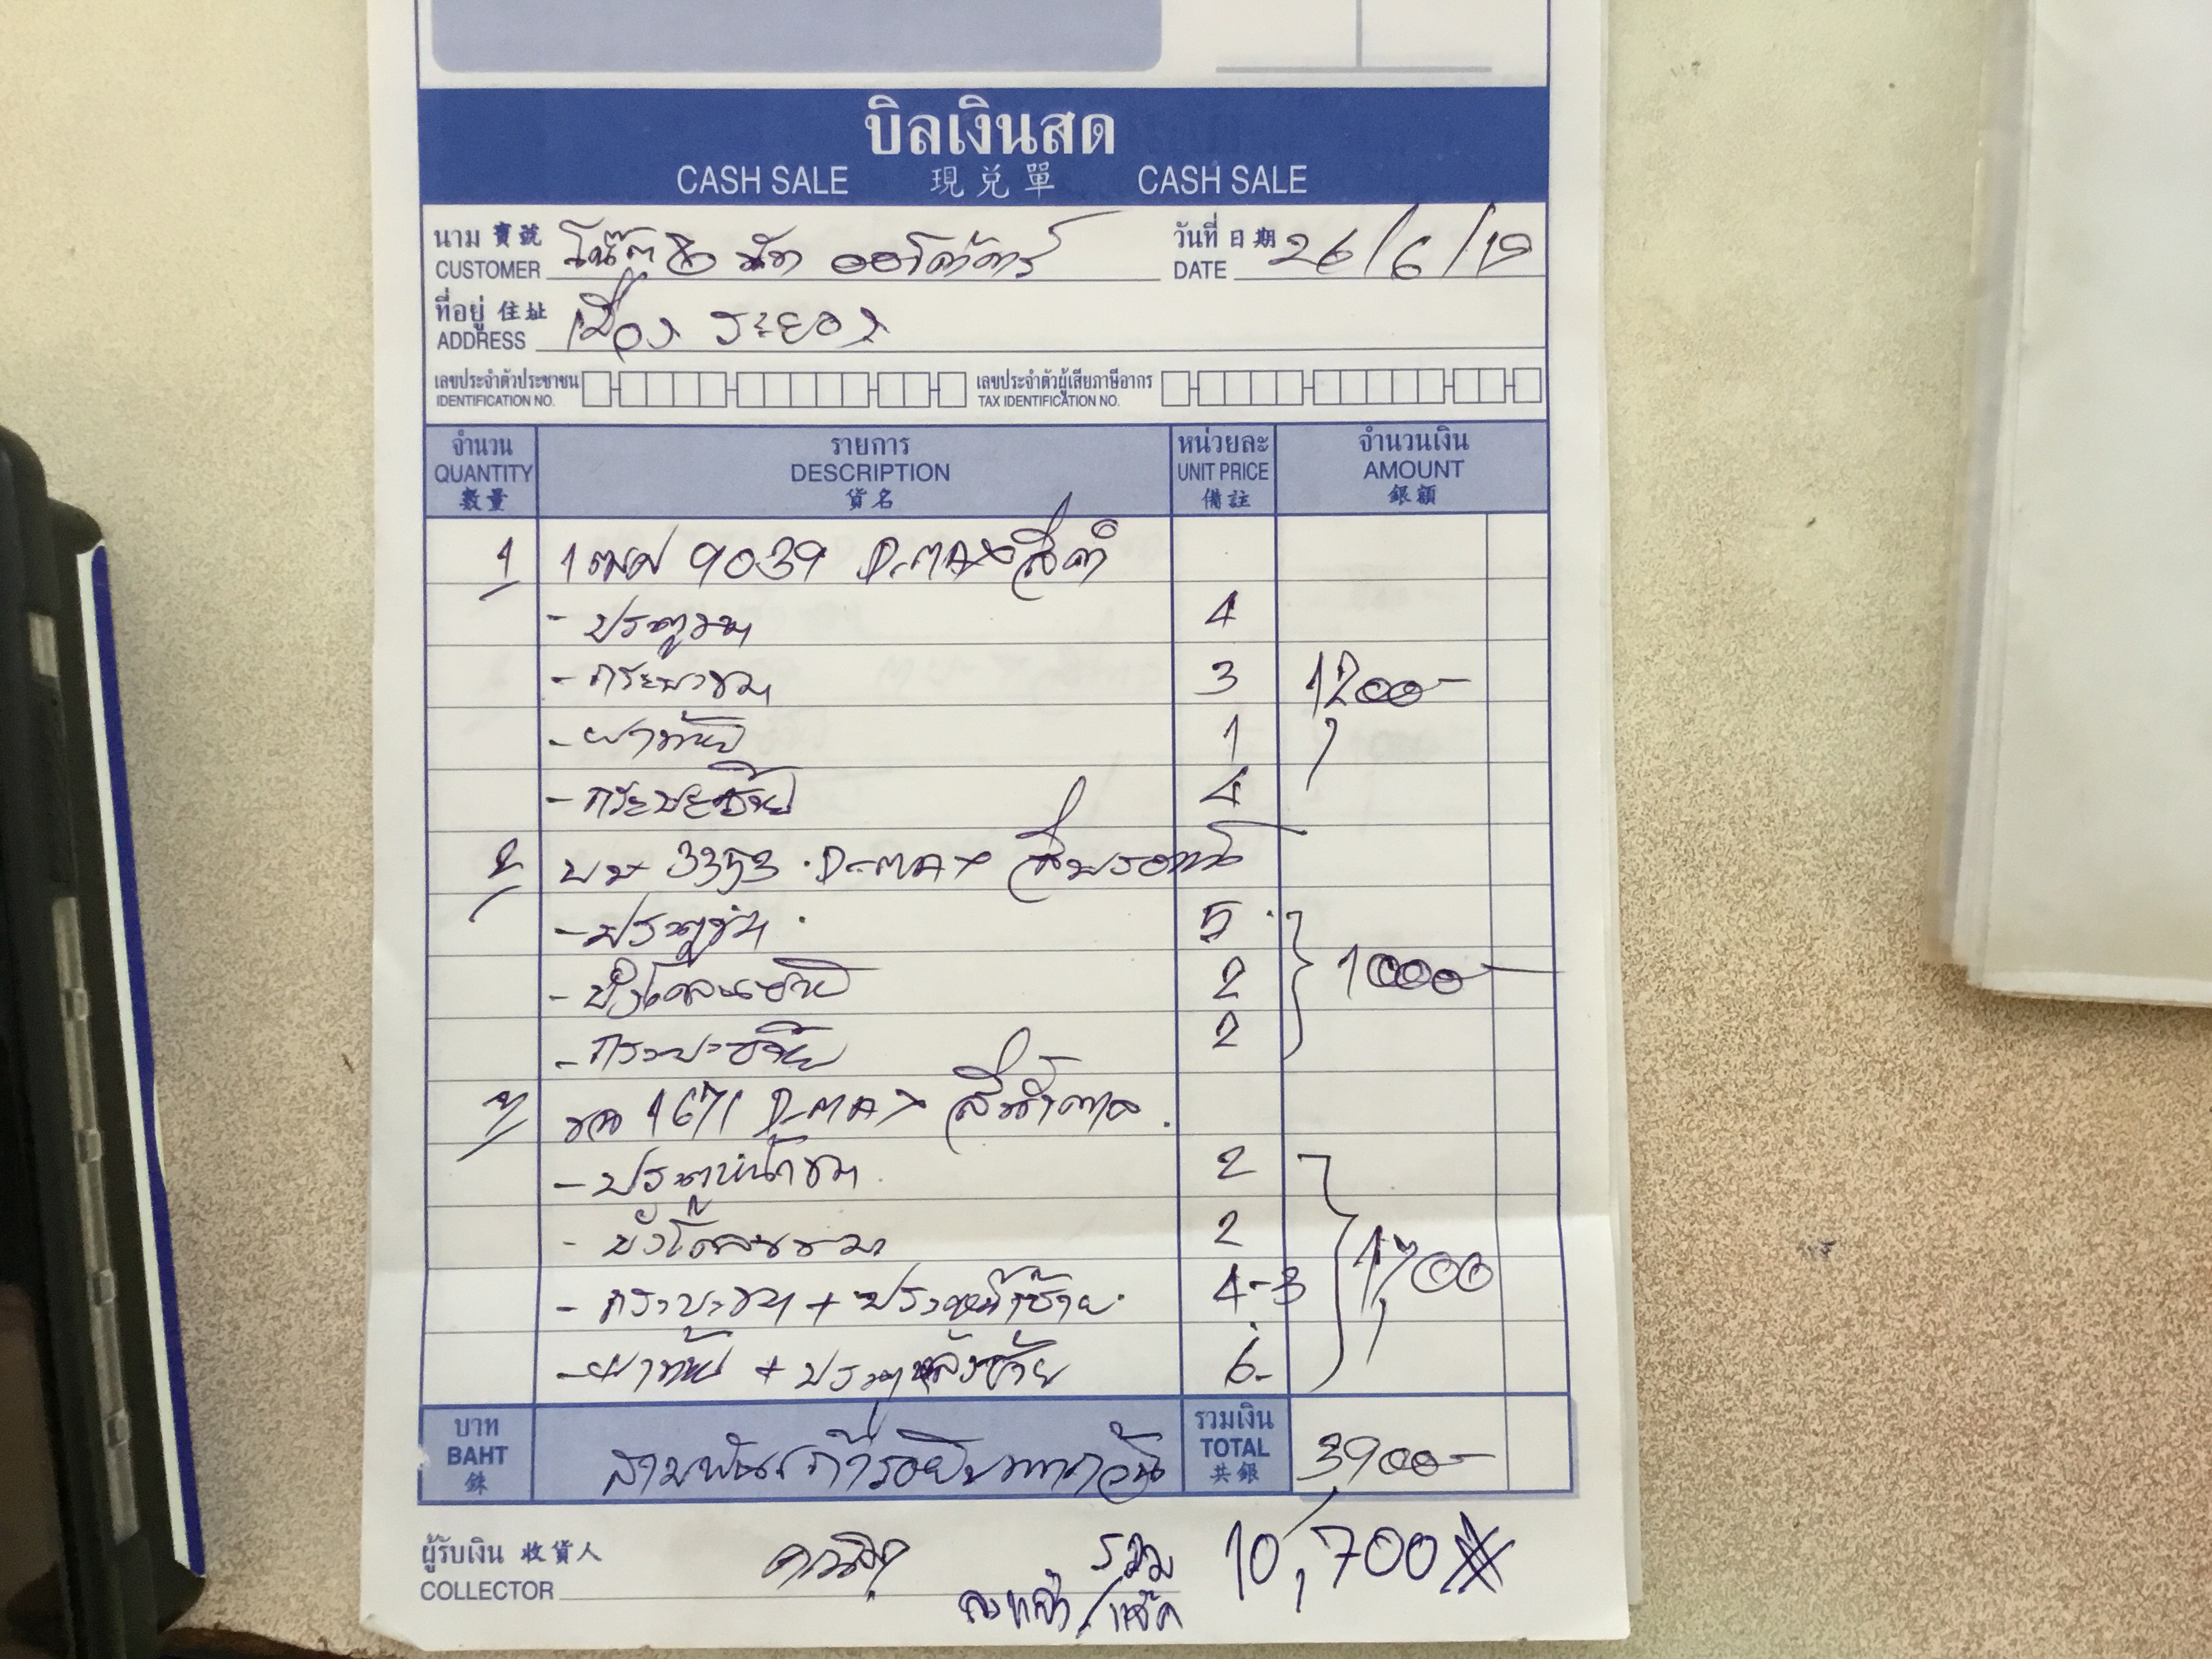 บิลเงินสด
CASH SALE 現兌單 CASH SALE
นาม 寶號 วันที่ 日期
CUSTOMER ออโต้คาร์ DATE 26/6/19
ที่อยู่ 住址
ADDRESS เมือง ระยอง
เลขประจำตัวประชาชน เลขประจำตัวผู้เสียภาษีอากร
IDENTIFICATION NO. TAX IDENTIFICATION NO.
จำนวน รายการ หน่วยละ จำนวนเงิน
QUANTITY DESCRIPTION UNIT PRICE AMOUNT
數量 貨名 備註 銀額
1 9039 D-MAX สีดำ
- ประตูขวา 4
- กระบะขวา 3 1200-
- ฝาท้าย 1
- กระบะซ้าย 4
2 3353 D-MAX สีบรอนซ์
- ประตูขวา 5
- บังโคลนซ้าย 2 1000-
- กระบะซ้าย 2
3 1671 D-MAX สีน้ำตาล
- ประตูหน้าขวา 2
- บังโคลนขวา 2
- กระบะขวา + ประตูหน้าซ้าย 4-3 1700
- ฝาท้าย + ประตูหลังซ้าย 6-
บาท รวมเงิน
BAHT สามพันเก้าร้อยบาทถ้วน TOTAL 3900-
銖 共銀
ผู้รับเงิน 收貨人 รวม 10,700
COLLECTOR